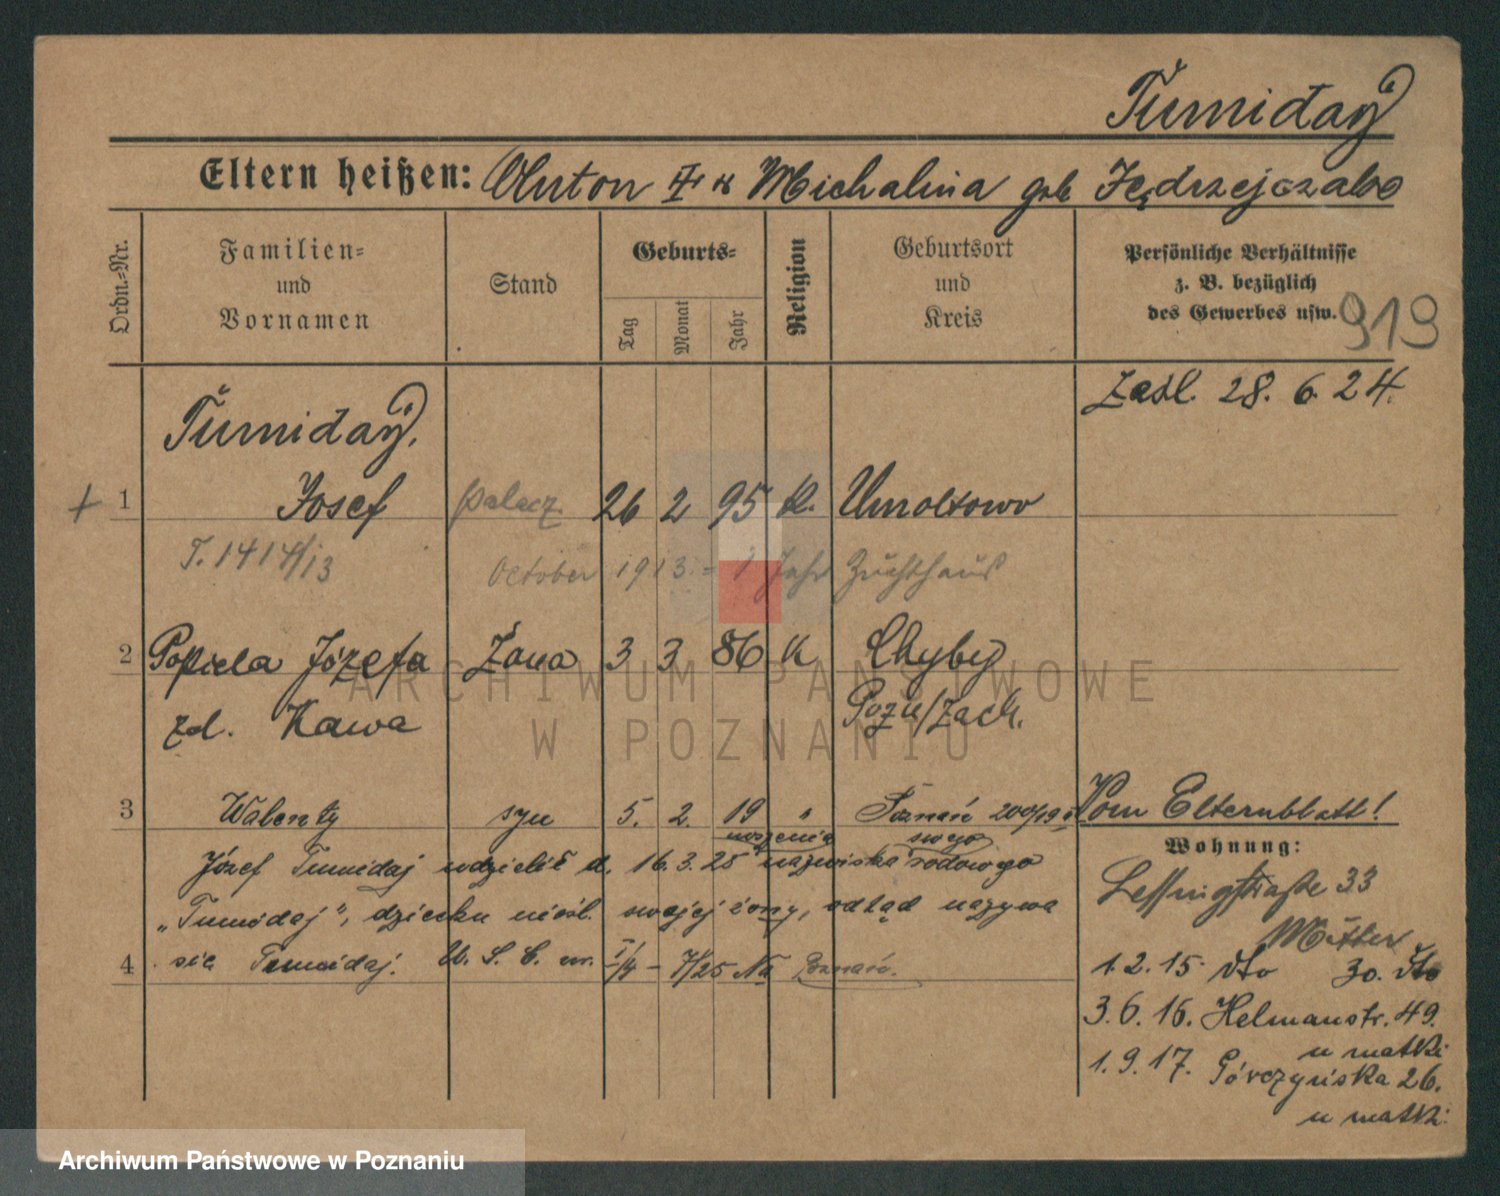 Tumiday
Eltern heißen: Anton I. u Michalina geb Jędrzejczak
Ordn.-Nr.
Familien- und Vornamen
Stand
Geburts-
Tag
Monat
Jahr
Religion
Geburtsort und Kreis
Persönliche Verhältnisse
z. B. bezüglich
des Gewerbes usw.
919
Zasl. 28. 6. 24.
Tumiday,
+ 1 Josef palacz 26 2 95 k. Umoltowo
T. 1414/13 October 1913 = 1 Jahr Zuchthaus
2 Popiela Józefa Żona 3 3 86 k Chyby
zd. Kawa Pozn/Zach.
3 Walenty syn 5. 2. 19 " Poznań
Vom Elternblatt!
noszenia swego
Józef Tumidaj udzielił d. 16.3.25 nazwiska rodowego
"Tumidaj", dziecku nieśl. swojej żony, odtąd nazywa
4 się Tumidaj. U. S. C. Poznań.
Wohnung:
Lessingstraße 33
Mutter
1.2.15 dto 30. dto
3.6.16. Helmanstr. 49.
u matki
1.9.17. Górczyńska 26.
u matki
ARCHIWUM PAŃSTWOWE
W POZNANIU
Archiwum Państwowe w Poznaniu